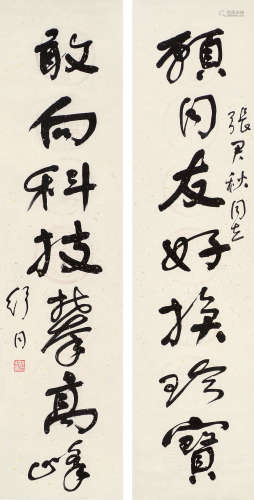 願同友好換珍寶
張君秋同志
敢向科技攀高峰
舒同